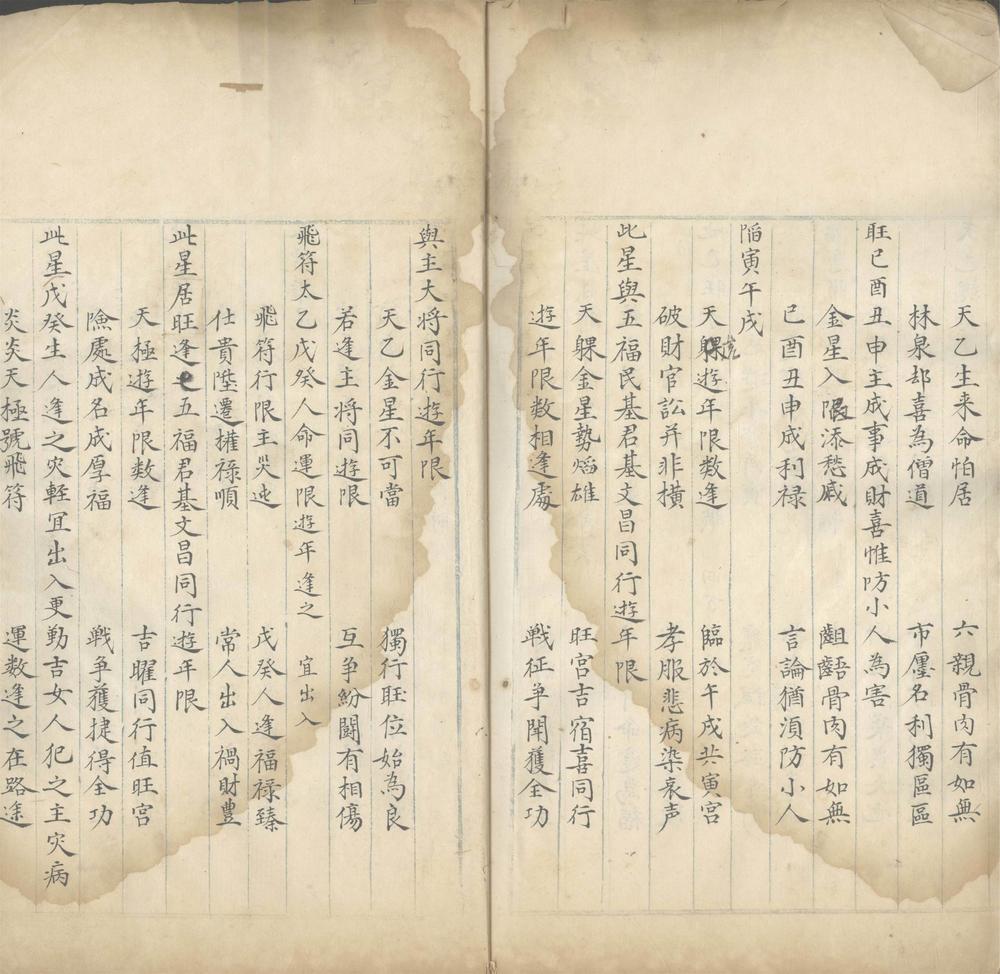 天乙生来命怕居　六親骨肉有如無
林泉却喜為僧道　市廛名利獨區區
旺巳酉丑申主成事成財喜惟防小人為害
金星入限添愁戚　齟齬骨肉有如無
巳酉丑申成利禄　言論猶湏防小人
陷寅午戌
天遊年限数逢　臨於午戌共寅宫
破財官訟并非横　孝服悲病染哀声
此星與五福民基君基文昌同行遊年限
天躶金星勢熖雄　旺宫吉宿喜同行
遊年限数相逢處　戦征争閗獲全功
與主大将同行遊年限
天乙金星不可當　獨行旺位始為良
若逢主将同遊限　互争紛闘有相傷
飛符太乙戊癸人命運限遊年逢之　宜出入
飛符行限主災迍　戊癸人逢福禄臻
仕貴陞遷擁禄順　常人出入禍財豊
此星居旺逢五福君基文昌同行遊年限
天極遊年限数逢　吉曜同行值旺宫
險處成名成厚福　戦争獲捷得全功
此星戊癸生人逢之灾軽宜出入更勤吉女人犯之主灾病
炎炎天極號飛符　運数逢之在路途